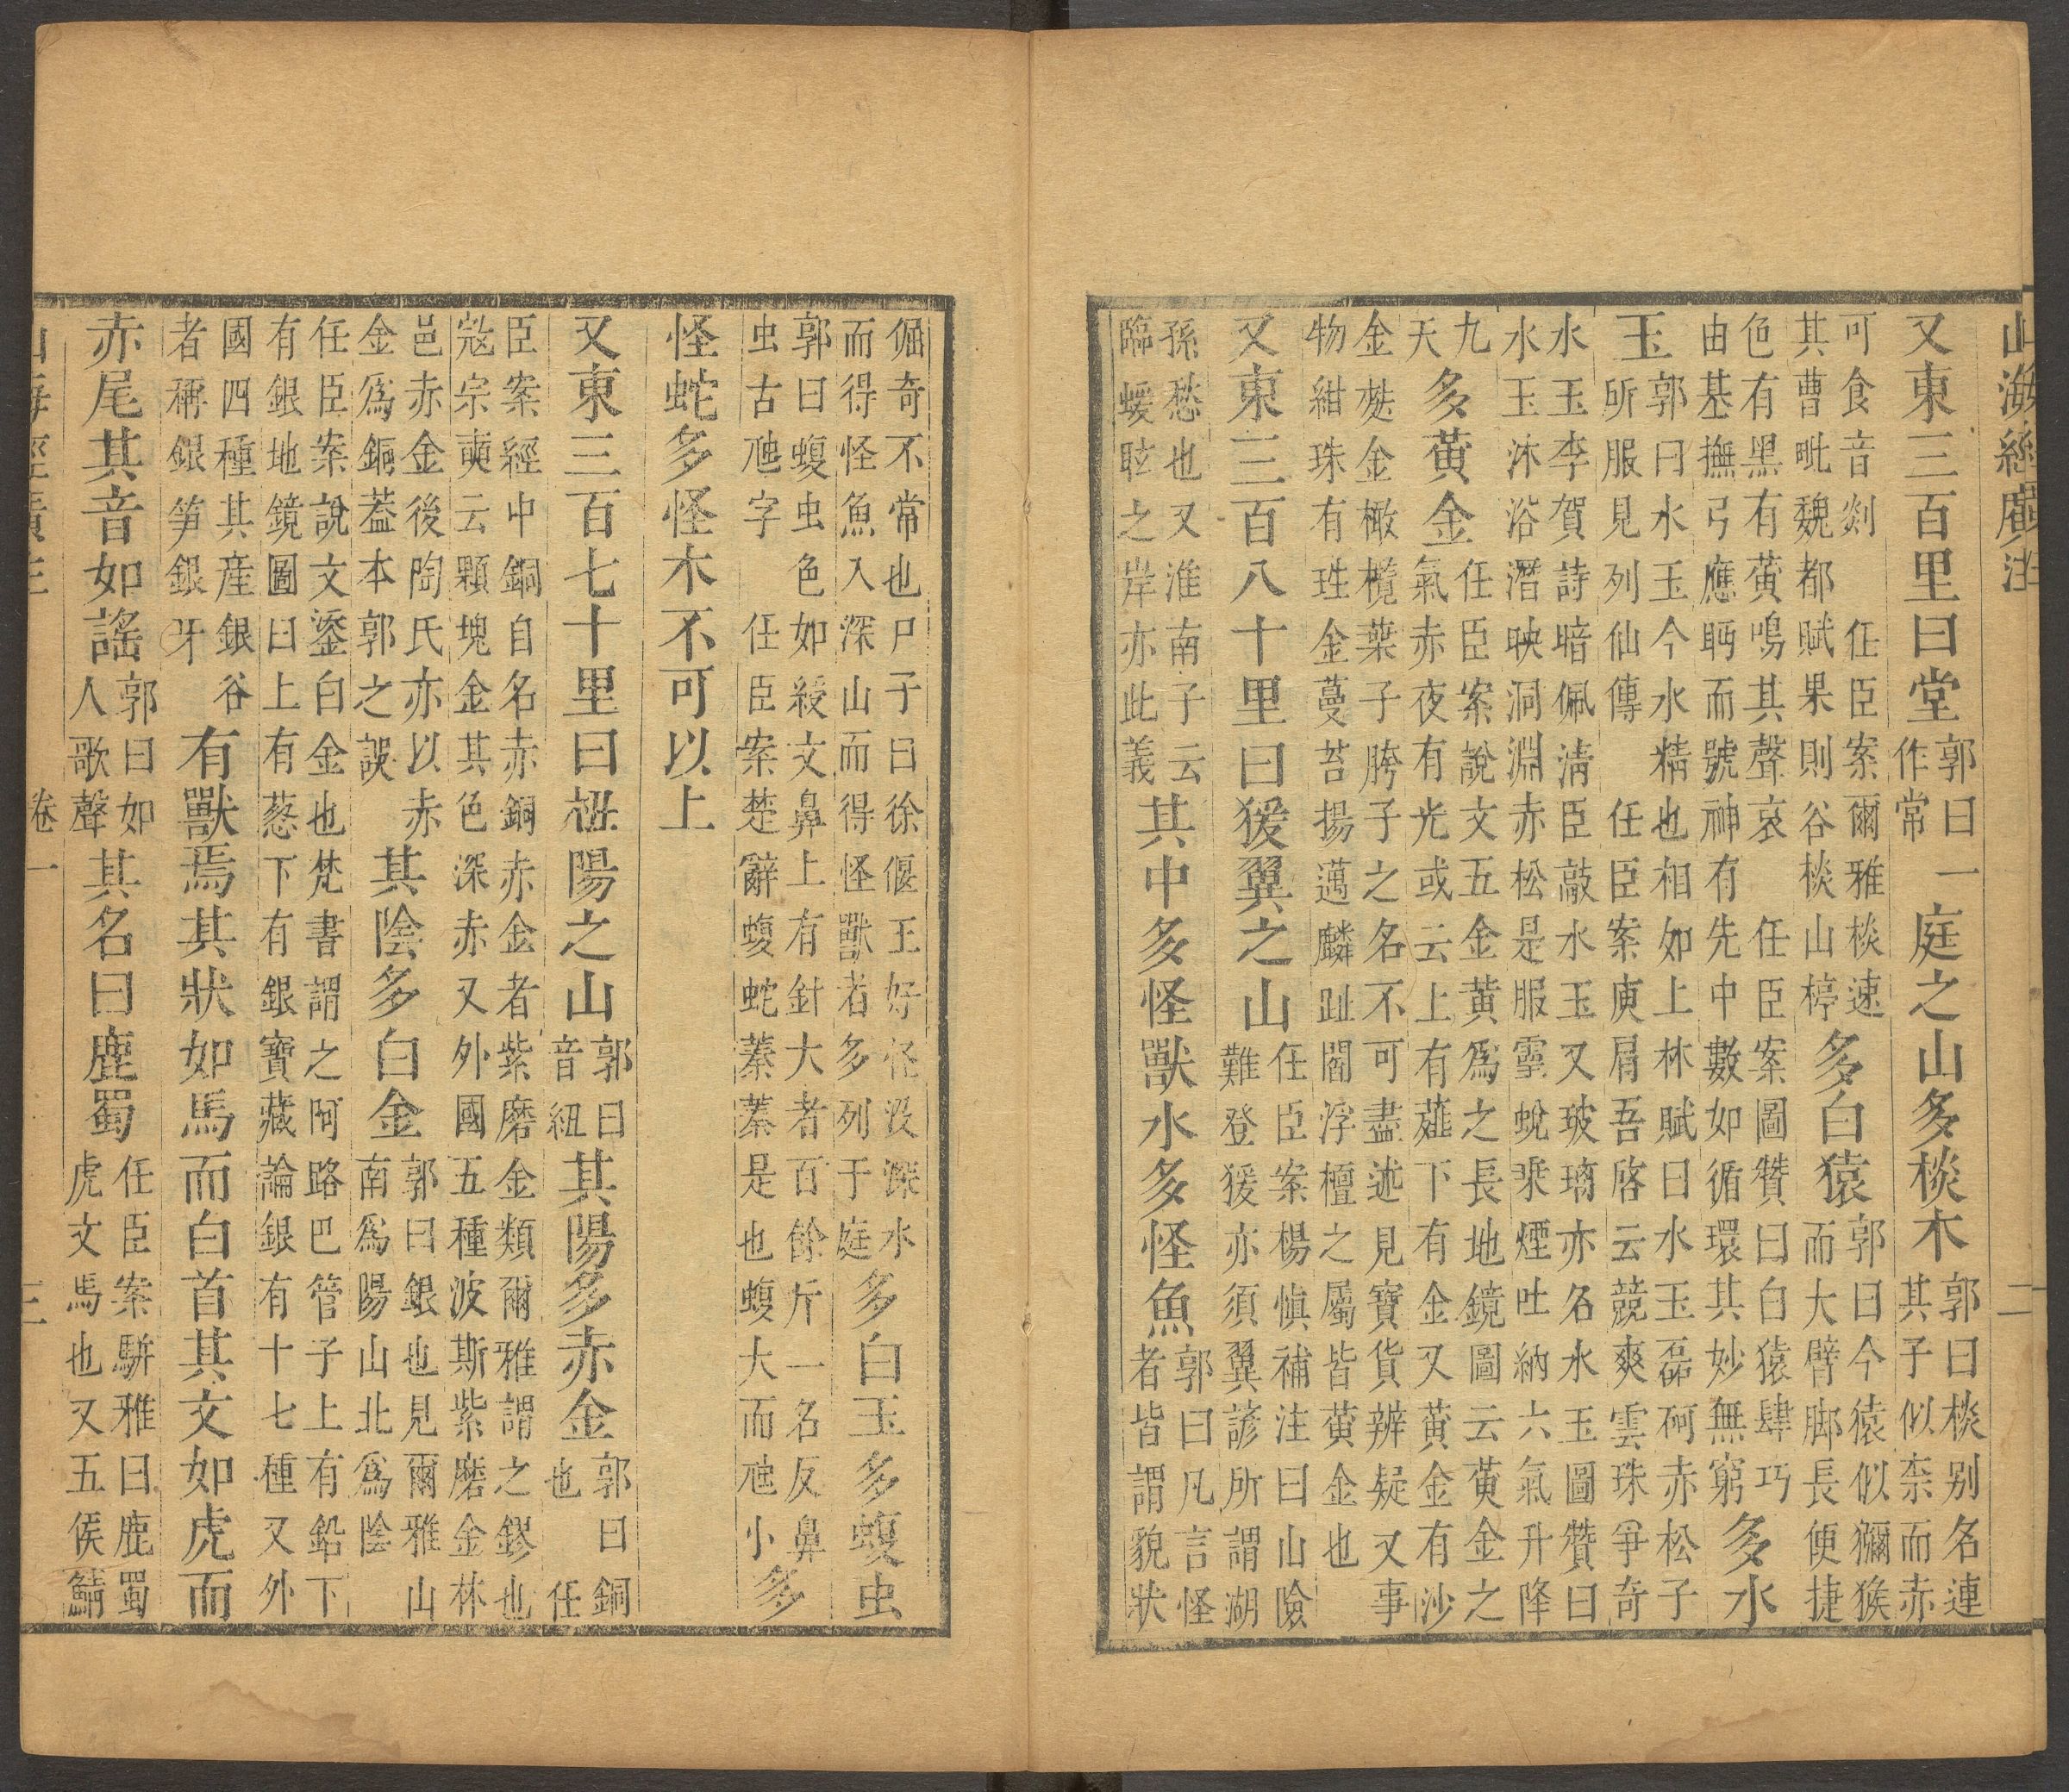 山海經廣注 二
又東三百里曰堂郭曰一作常庭之山多棪木郭曰棪別名連其子似柰而赤
可食音剡 任臣案爾雅棪速其曹毗魏都賦果則谷棪山楟多白猿郭曰今猿似獼猴而大臂脚長便捷
色有黑有黃鳴其聲哀 任臣案圖贊曰白猿肆巧由基撫弓應眄而號神有先中數如循環其妙無窮多水
玉郭曰水玉今水精也相如上林賦曰水玉磊砢赤松子所服見列仙傳 任臣案庾肩吾啓云競爽雲珠爭奇
水玉李賀詩暗佩清臣敲水玉又玻璃亦名水玉圖贊曰水玉沐浴潛映洞淵赤松是服靈蛻乘煙吐納六氣升降
九天多黃金任臣案說文五金黃爲之長地鏡圖云黃金之氣赤夜有光或云上有薤下有金又黃金有沙
金麩金橄欖葉子胯子之名不可盡述見寶貨辨疑又事物紺珠有珄金蔓苔揚邁麟趾閻浮檀之屬皆黃金也
又東三百八十里曰猨翼之山任臣案楊慎補注曰山險難登猨亦須翼諺所謂湖
孫愁也又淮南子云臨蝯眩之岸亦此義其中多怪獸水多怪魚郭曰凡言怪者皆謂貌狀
倔奇不常也尸子曰徐偃王好怪沒深水而得怪魚入深山而得怪獸者多列于庭多白玉多蝮虫
郭曰蝮虫色如綬文鼻上有針大者百餘斤一名反鼻虫古虺字 任臣案楚辭蝮蛇蓁蓁是也蝮大而虺小多
怪蛇多怪木不可以上
又東三百七十里曰杻陽之山郭曰音紐其陽多赤金郭曰銅也 任
臣案經中銅自名赤銅赤金者紫磨金類爾雅謂之鏐也寇宗奭云顆塊金其色深赤又外國五種波斯紫磨金林
邑赤金後陶氏亦以赤金爲銅葢本郭之誤其陰多白金郭曰銀也見爾雅山南爲陽山北爲陰
任臣案說文鋈白金也梵書謂之阿路巴管子上有鉛下有銀地鏡圖曰上有葱下有銀寶藏論銀有十七種又外
國四種其產銀谷者稱銀笋銀牙有獸焉其狀如馬而白首其文如虎而
赤尾其音如謠郭曰如人歌聲其名曰鹿蜀任臣案駢雅曰鹿蜀虎文馬也又五侯鯖
山海經廣注 卷一 三